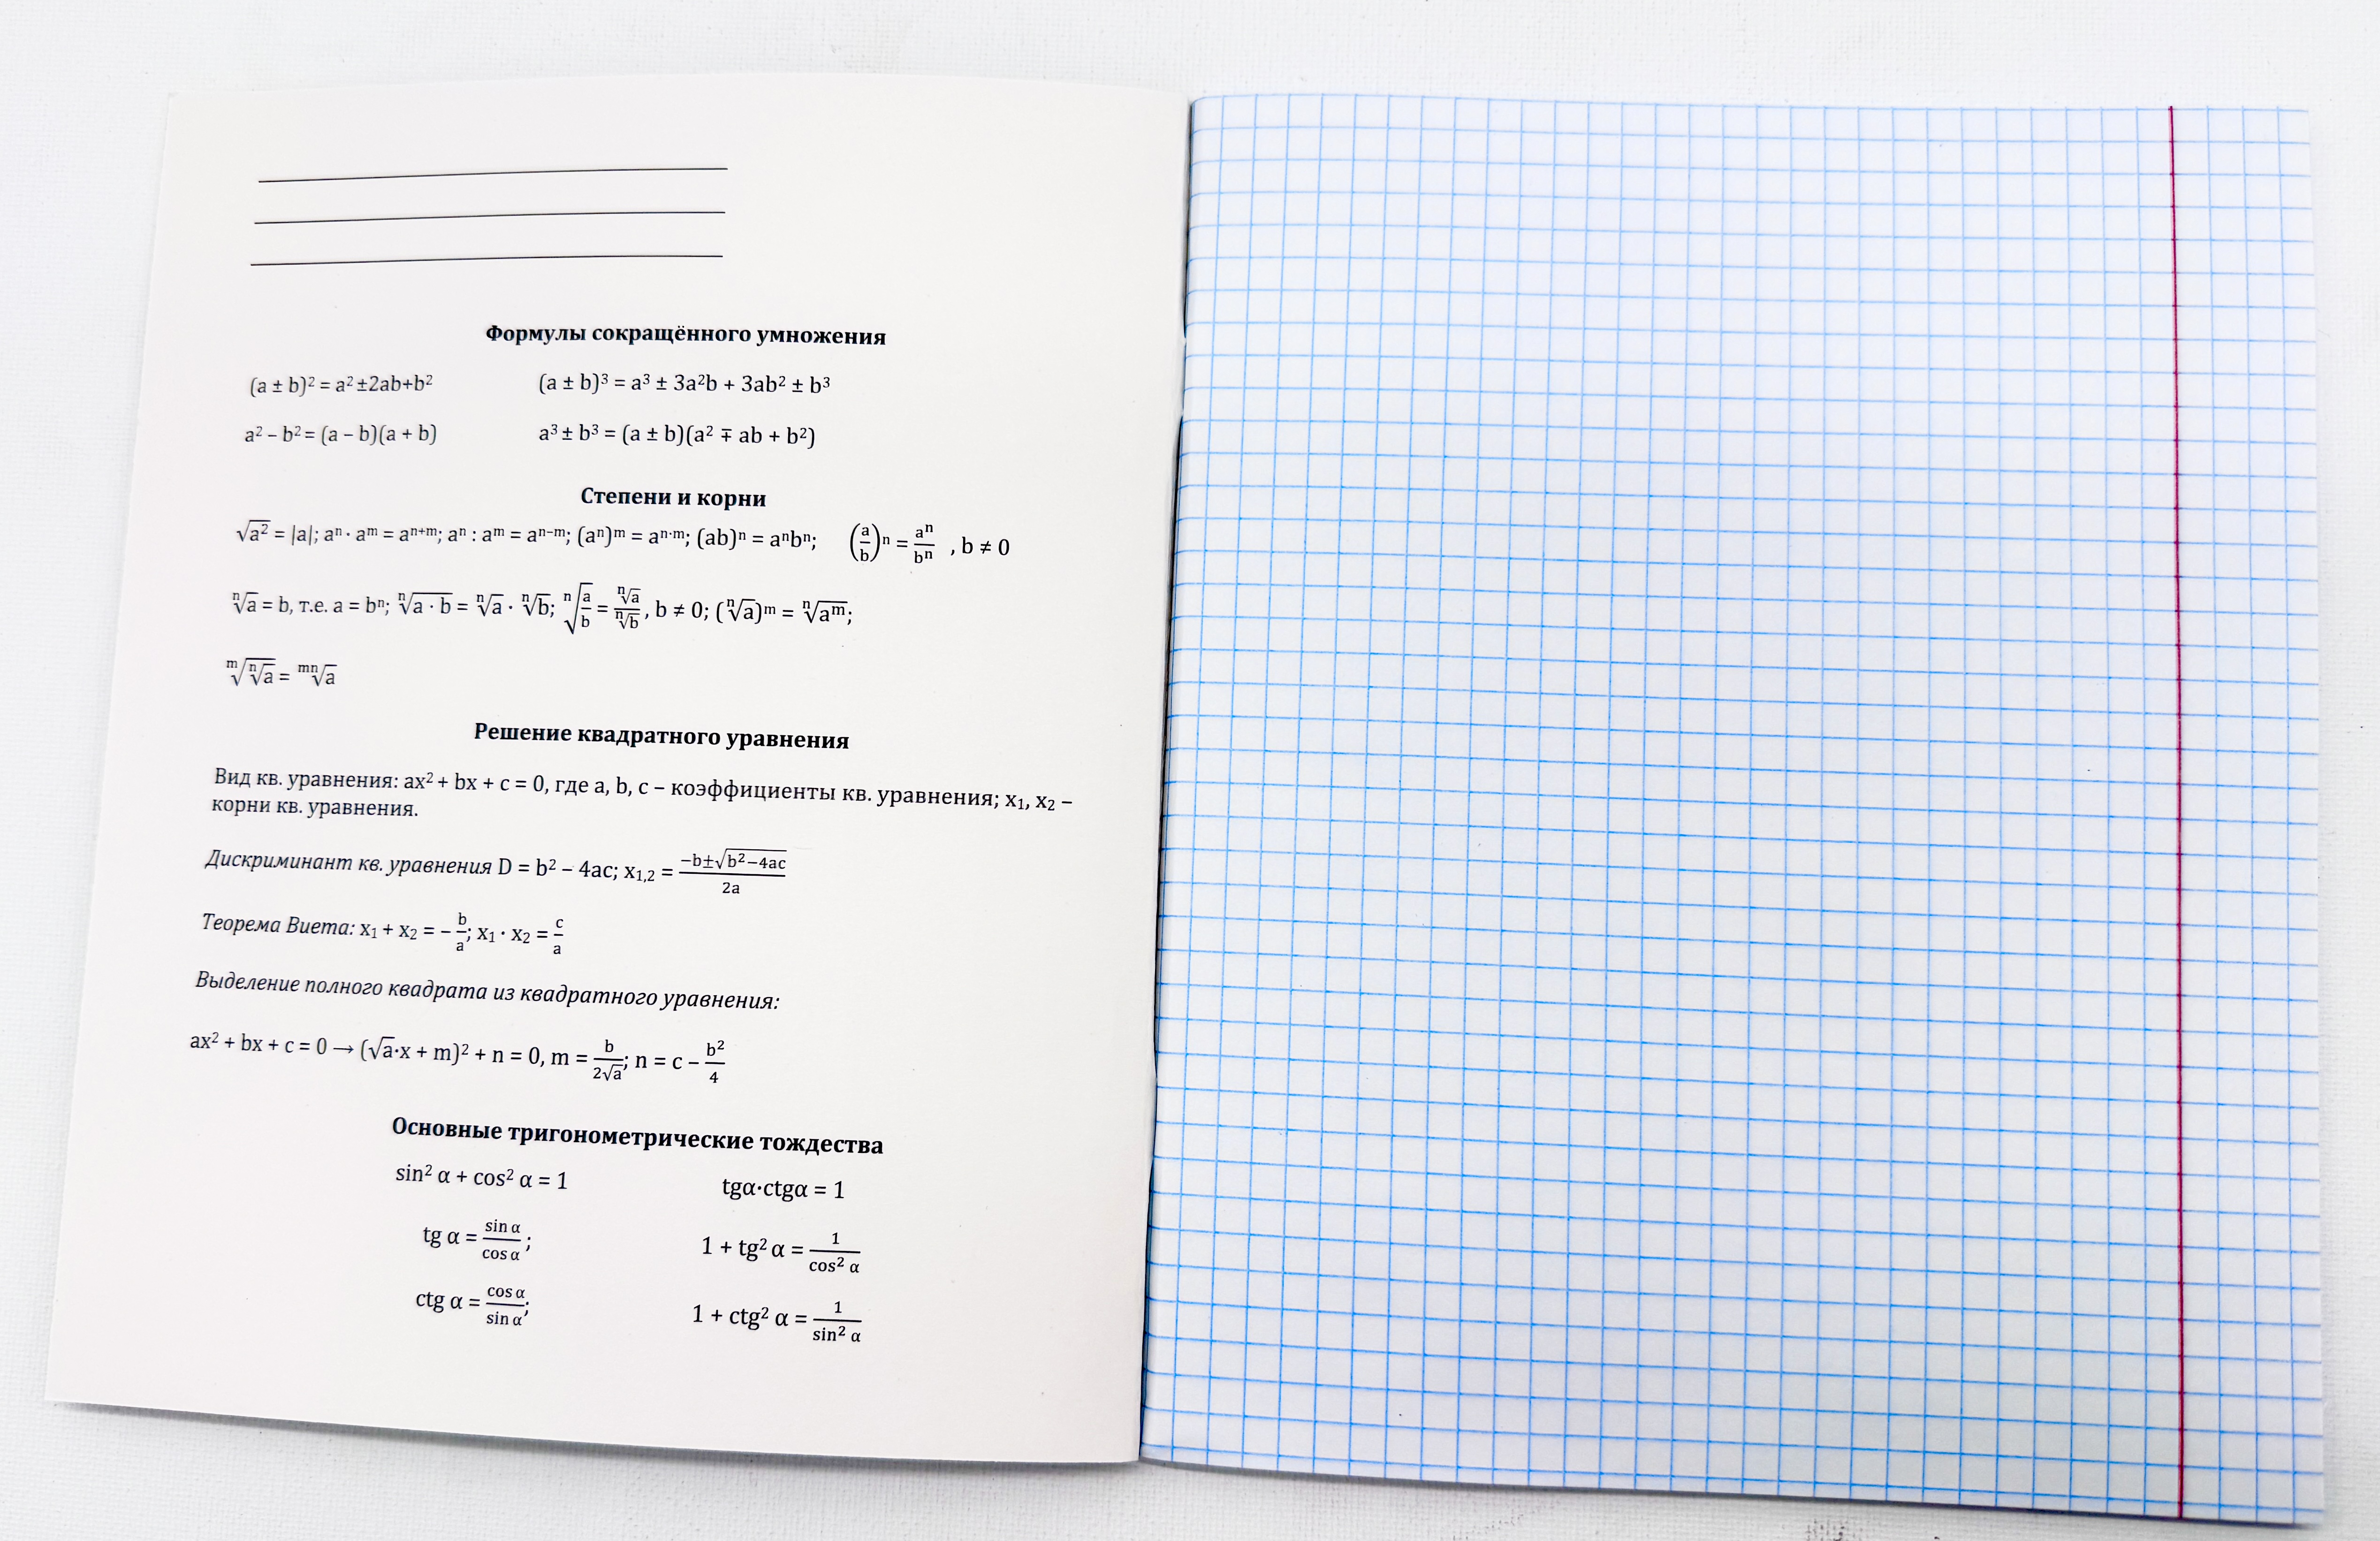 Формулы сокращённого умножения
(a ± b)² = a² ±2ab+b² (a ± b)³ = a³ ± 3a²b + 3ab² ± b³
a² – b² = (a – b)(a + b) a³ ± b³ = (a ± b)(a² ∓ ab + b²)
Степени и корни
√a² = |a|; aⁿ · aᵐ = aⁿ⁺ᵐ; aⁿ : aᵐ = aⁿ⁻ᵐ; (aⁿ)ᵐ = aⁿ·ᵐ; (ab)ⁿ = aⁿbⁿ; (a/b)ⁿ = aⁿ/bⁿ , b ≠ 0
ⁿ√a = b, т.е. a = bⁿ; ⁿ√(a · b) = ⁿ√a · ⁿ√b; ⁿ√(a/b) = ⁿ√a/ⁿ√b, b ≠ 0; (ⁿ√a)ᵐ = ⁿ√aᵐ;
ᵐ√(ⁿ√a) = ᵐⁿ√a
Решение квадратного уравнения
Вид кв. уравнения: ax² + bx + c = 0, где a, b, c – коэффициенты кв. уравнения; x₁, x₂ –
корни кв. уравнения.
Дискриминант кв. уравнения D = b² – 4ac; x₁,₂ = (–b±√(b²–4ac))/2a
Теорема Виета: x₁ + x₂ = – b/a; x₁ · x₂ = c/a
Выделение полного квадрата из квадратного уравнения:
ax² + bx + c = 0 → (√a·x + m)² + n = 0, m = b/(2√a); n = c – b²/4
Основные тригонометрические тождества
sin² α + cos² α = 1 tgα·ctgα = 1
tg α = sin α/cos α; 1 + tg² α = 1/cos² α
ctg α = cos α/sin α; 1 + ctg² α = 1/sin² α